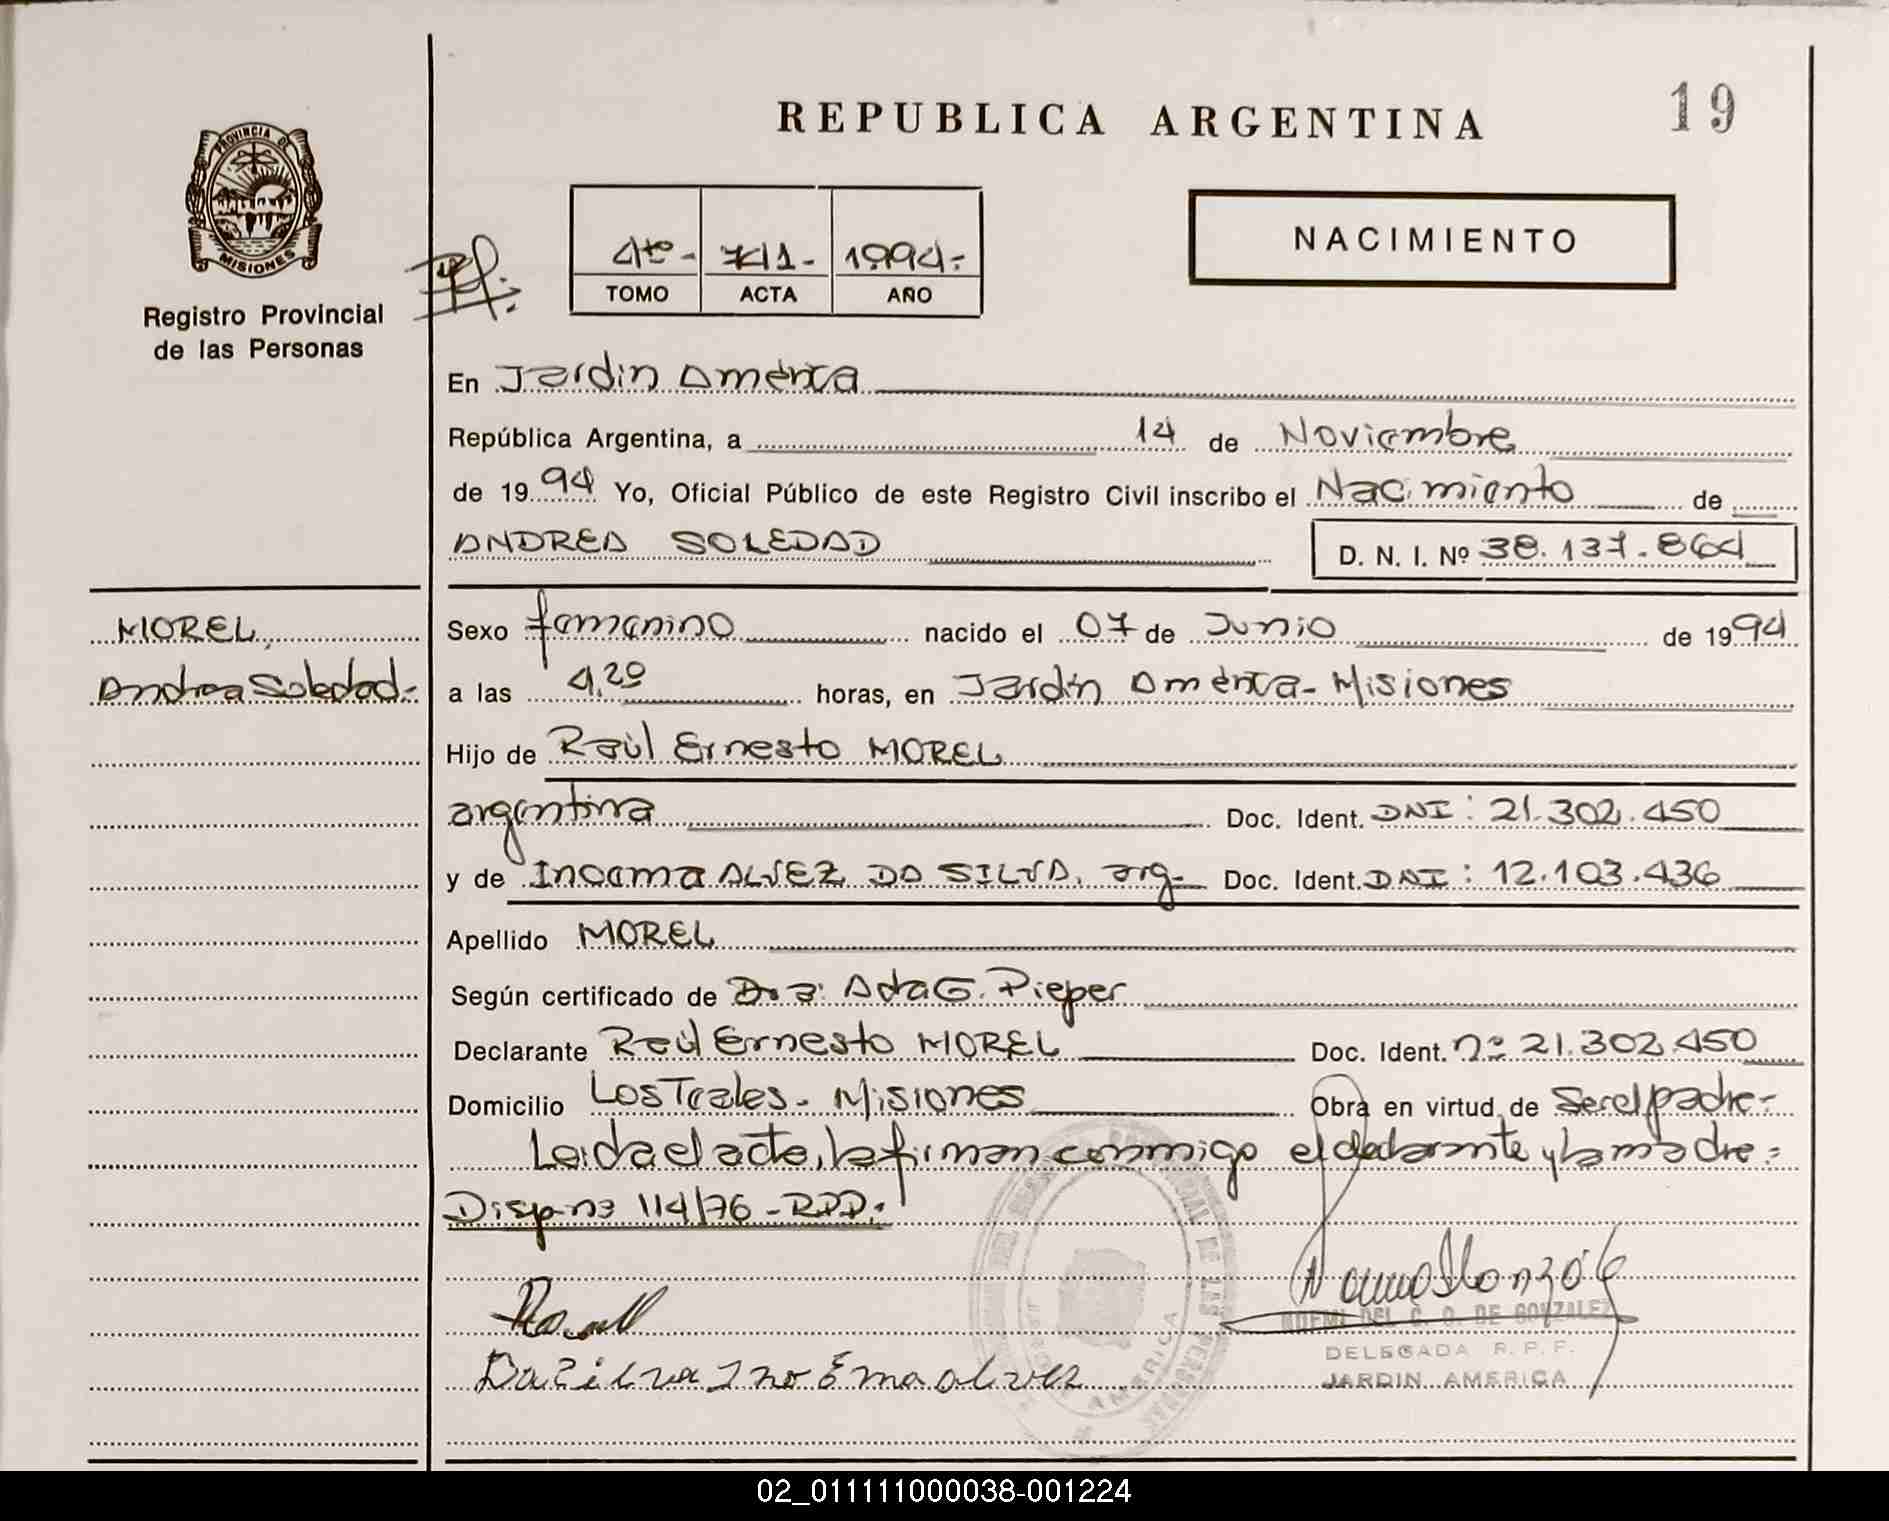 REPUBLICA ARGENTINA
19
PROVINCIA DE
MISIONES
Registro Provincial
de las Personas
4to- 741- 1994.-
TOMO ACTA AÑO
NACIMIENTO
En Jardín América
República Argentina, a 14 de Noviembre
de 1994 Yo, Oficial Público de este Registro Civil inscribo el Nacimiento de
ANDREA SOLEDAD D. N. I. Nº 38.137.864
MOREL,
Andrea Soledad.-
Sexo femenino nacido el 07 de Junio de 1994
a las 4,20 horas, en Jardín América- Misiones
Hijo de Raúl Ernesto MOREL
argentina Doc. Ident. DNI: 21.302.450
y de Inoema ALVEZ DA SILVA. arg- Doc. Ident. DNI: 12.103.436
Apellido MOREL
Según certificado de Dra: Ada G. Pieper
Declarante Raúl Ernesto MOREL Doc. Ident. nº 21.302.450
Domicilio Los Teales- Misiones Obra en virtud de Ser el padre-
Leida el acta, la firman conmigo el declarante y la madre.-
Disp. nº 114/76 -RPP.-
Da Silva Ino Ema alvez
NOEMI DEL C. O. DE GONZALEZ
DELEGADA R. P. P.
JARDIN AMERICA
02_011111000038-001224